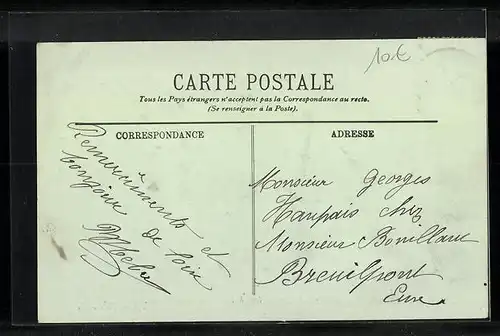 10.€
CARTE POSTALE
Tous les Pays étrangers n'acceptent pas la Correspondance au recto.
(Se renseigner à la Poste).
CORRESPONDANCE
ADRESSE
Remerciements et
bonjour de loin
Monsieur Georges
Haupais chez
Monsieur Bouillant
Breuilpont
Eure